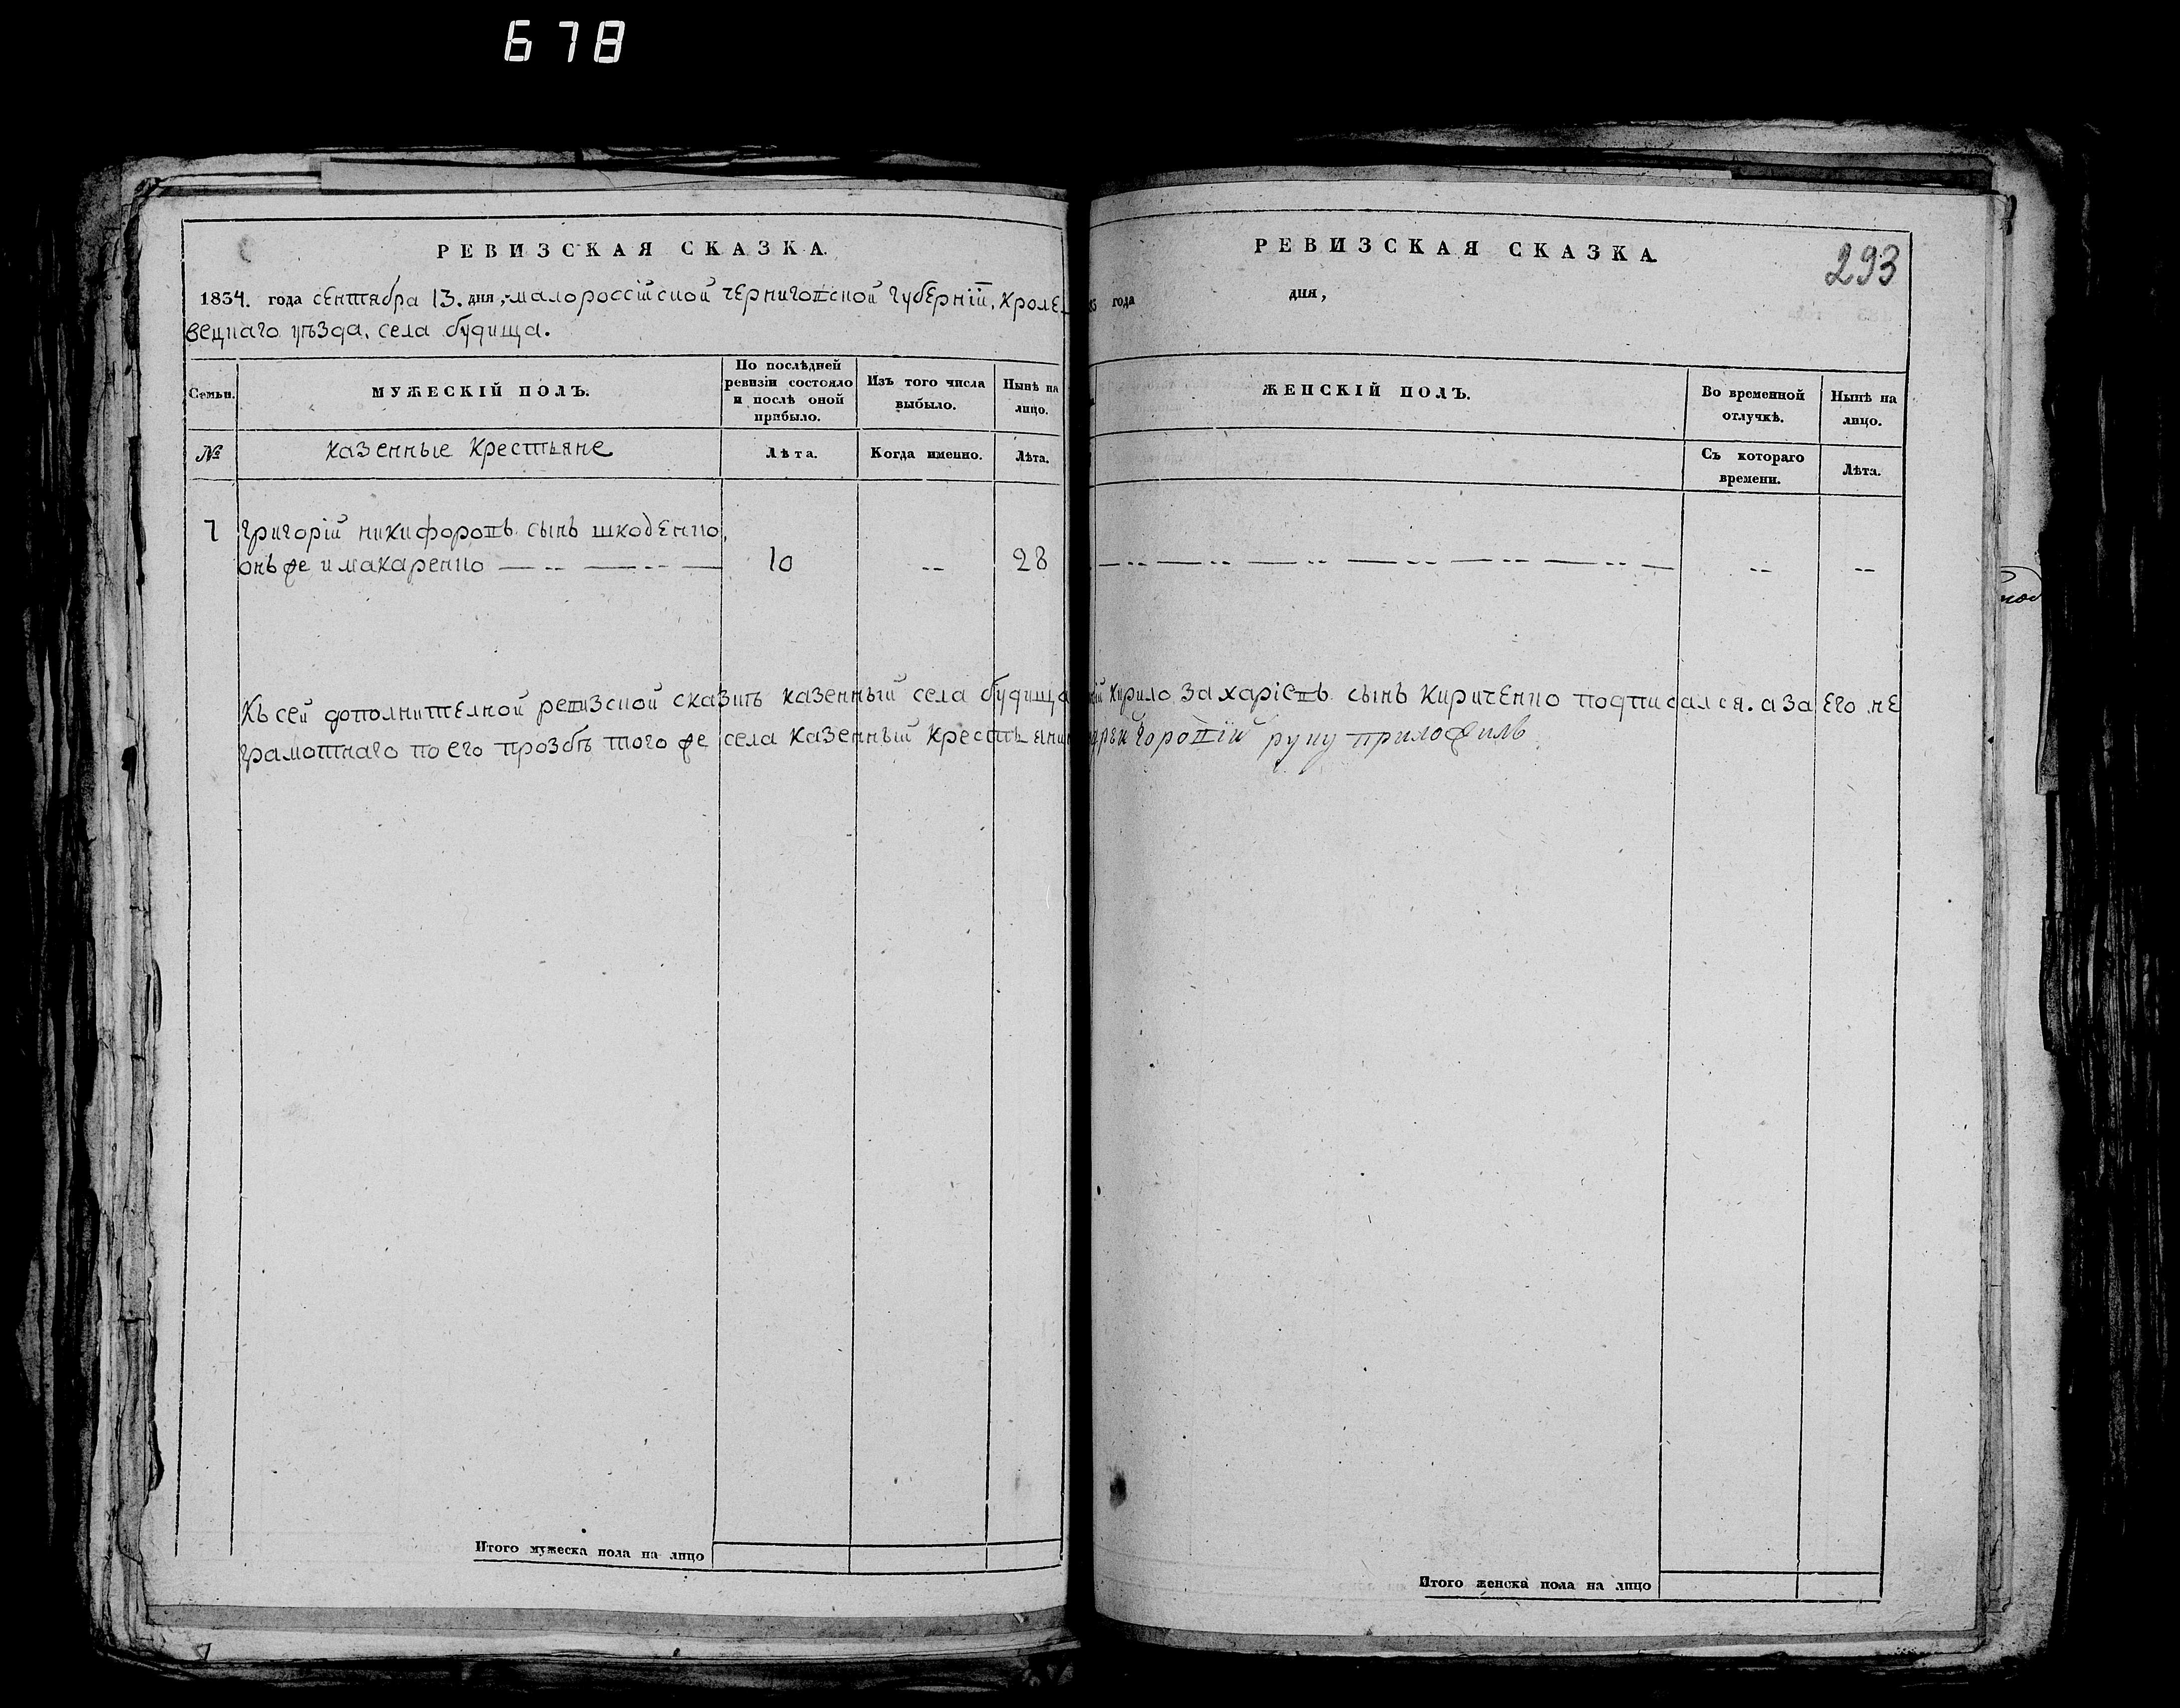 678
РЕВИЗСКАЯ СКАЗКА.
1854. года сентября 13. дня, малороссійской черниговской губерніи, кроле-
вецкаго уѣзда. села будища.
Семьи.
МУЖЕСКІЙ ПОЛЪ.
По послѣдней
ревизіи состояло
и послѣ оной
прибыло.
Изъ того числа
выбыло.
Нынѣ на
лицо.
№
казенные крестьяне
Лѣта.
Когда именно.
Лѣта.
1 григорій никифоровъ сынъ шкоденко,
онъ же и макаренко — -- — -- — 10 -- 28
РЕВИЗСКАЯ СКАЗКА.
293
185 года дня,
ЖЕНСКІЙ ПОЛЪ.
Во временной
отлучкѣ.
Нынѣ на
лицо.
Съ котораго
времени.
Лѣта.
— -- — -- — -- — -- — -- — -- — -- --
Къ сей дополнителной ревизской сказкѣ казенный села будища кирило захаріевъ сынъ кириченко подписался. а за его не
грамотнаго по его прозбѣ того же села казенный крестьянинъ руку приложилъ
Итого мужеска пола на лицо
Итого женска пола на лицо